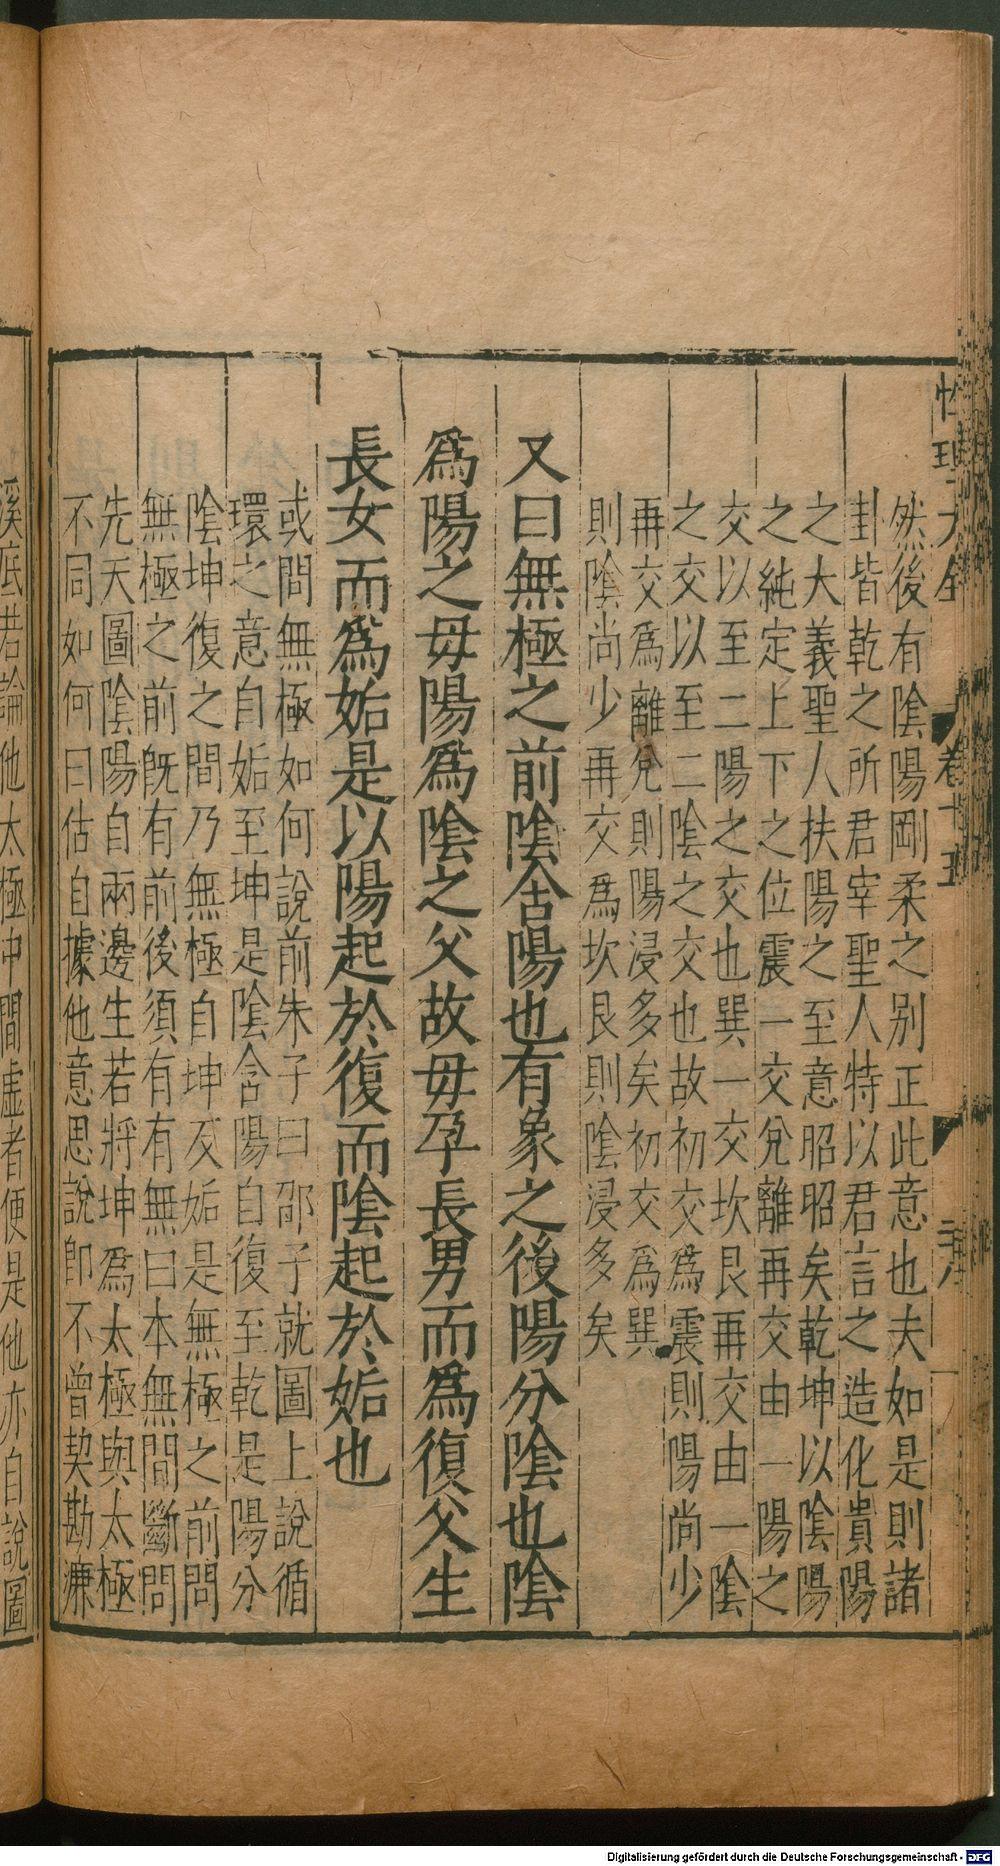 然後有陰陽剛柔之别正此意也夫如是則諸
卦皆乾之所君宰聖人特以君言之造化貴陽
之大義聖人扶陽之至意昭昭矣乾坤以陰陽
之純定上下之位震一交兌離再交由一陽之
交以至二陽之交也巽一交坎艮再交由一陰
之交以至二陰之交也故初交爲震則陽尚少
再交爲離兌則陽浸多矣初交爲巽
則陰尚少再交爲坎艮則陰浸多矣
又曰無極之前陰含陽也有象之後陽分陰也陰
爲陽之母陽爲陰之父故母孕長男而爲復父生
長女而爲姤是以陽起於復而陰起於姤也
或問無極如何說前朱子曰邵子就圖上說循
環之意自姤至坤是陰含陽自復至乾是陽分
陰坤復之間乃無極自坤反姤是無極之前問
無極之前旣有前後須有有無曰本無間斷問
先天圖陰陽自兩邊生若將坤爲太極與太極
不同如何曰佑自據他意思說卽不曾契勘濂
溪底若論他太極中間虛者便是他亦自說圖
性理大全
卷十五
Digitalisierung gefördert durch die Deutsche Forschungsgemeinschaft - DFG